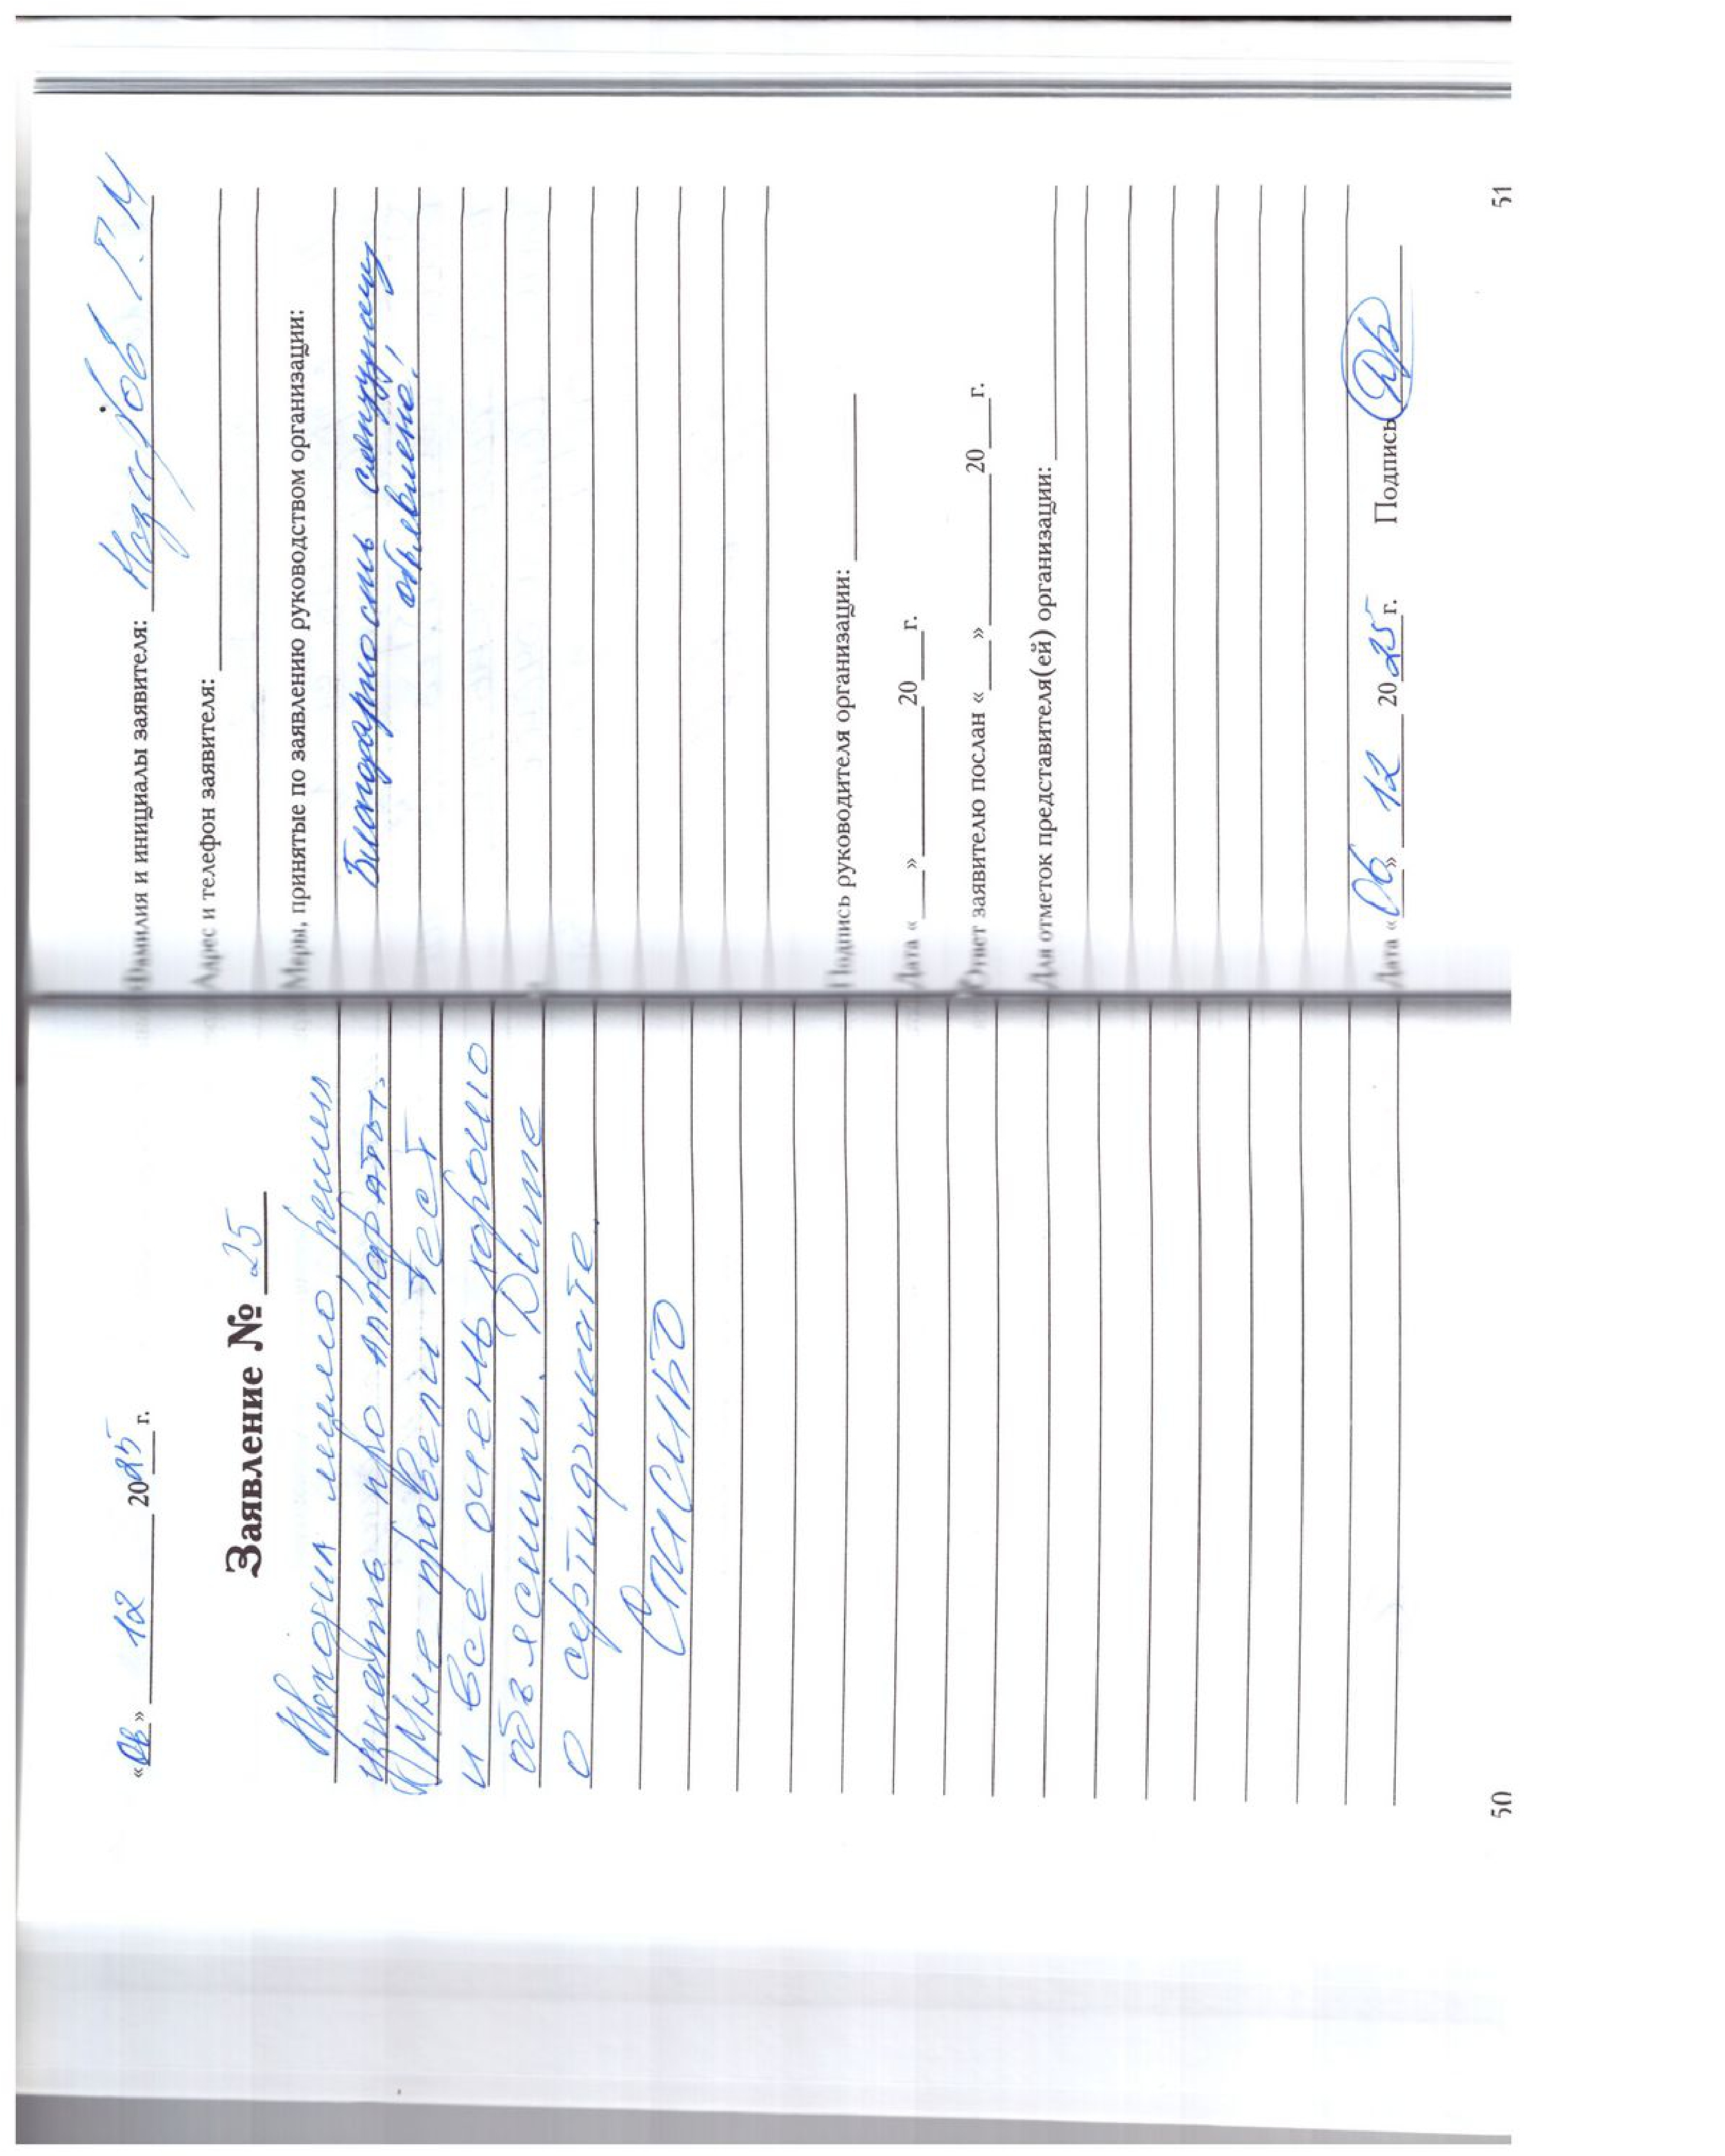 «06» 12 2025 г.
Заявление № 25
Проходил мимо, решил
узнать про аппараты.
Мне провели тест
и всё очень хорошо
объяснили. Dume
о сертификате.
Спасибо
50
Фамилия и инициалы заявителя: Г. М
Адрес и телефон заявителя:
Меры, принятые по заявлению руководством организации:
Благодарность сотруднику
объявлена!
Подпись руководителя организации:
Дата «___» 20___г.
Ответ заявителю послан «___» 20___г.
Для отметок представителя(ей) организации:
Дата «06» 12 2025 г. Подпись
51